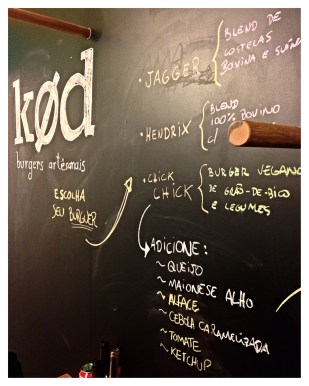 kød
burgers artesanais
ESCOLHA
SEU BURGUER
• JAGGER
BLEND DE
COSTELAS
BOVINA E SUÍNA
• HENDRIX
BLEND
100% BOVINO
c/
• CHICK
CHICK
BURGER VEGANO
DE GRÃO-DE-BICO
E LEGUMES
ADICIONE:
~ QUEIJO
~ MAIONESE ALHO
~ ALFACE
~ CEBOLA CARAMELIZADA
~ TOMATE
~ KETCHUP